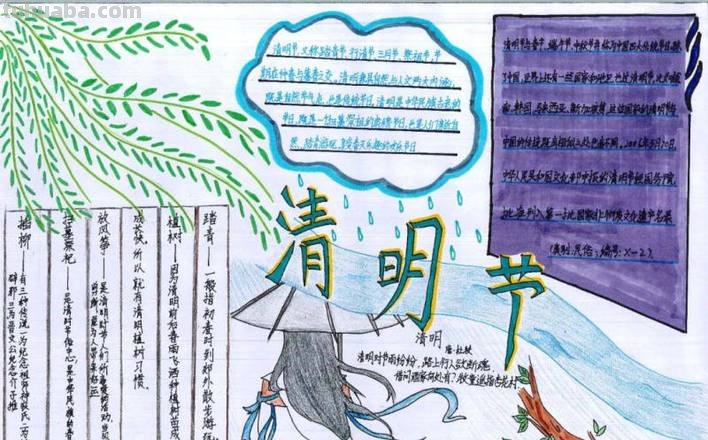 tuhuaba.com
清明节,又称踏青节、行清节、三月节、祭祖节,节
期在仲春与暮春之交。清明兼具自然与人文两大内涵,
既是自然节气点,也是传统节日,清明是中华民族古老的
节日,既是一
节日,也是人们亲近自
然、踏青游玩、享受春天乐趣的欢乐节日
清明节与春节、端午节、中秋节并称为中国四大传统节日。除
了中国,世界上还有一些国家和地区也过清明节,比如越
南、韩国、马来西亚、新加坡等
中国的传统
2006年5月20日,
中华人民共和国文化部申报的清明节经国务院
批准列入第一批国家级非物质文化遗产名录
(类别:民俗;编号:X-2)
清明节
踏青——一般指初春时到郊外散步游玩
植树——因为清明前后春雨飞洒种植树苗成
成长快,所以就有清明植树习惯
放风筝——是清明时节人们所喜爱的活动
扫墓祭祀——是清明节俗中心
插柳——有三种传说:一为纪念祖师神农氏
辟邪;三为晋文公纪念介子推
清明
唐·杜牧
清明时节雨纷纷,路上行人欲断魂
借问酒家何处有?牧童遥指杏花村